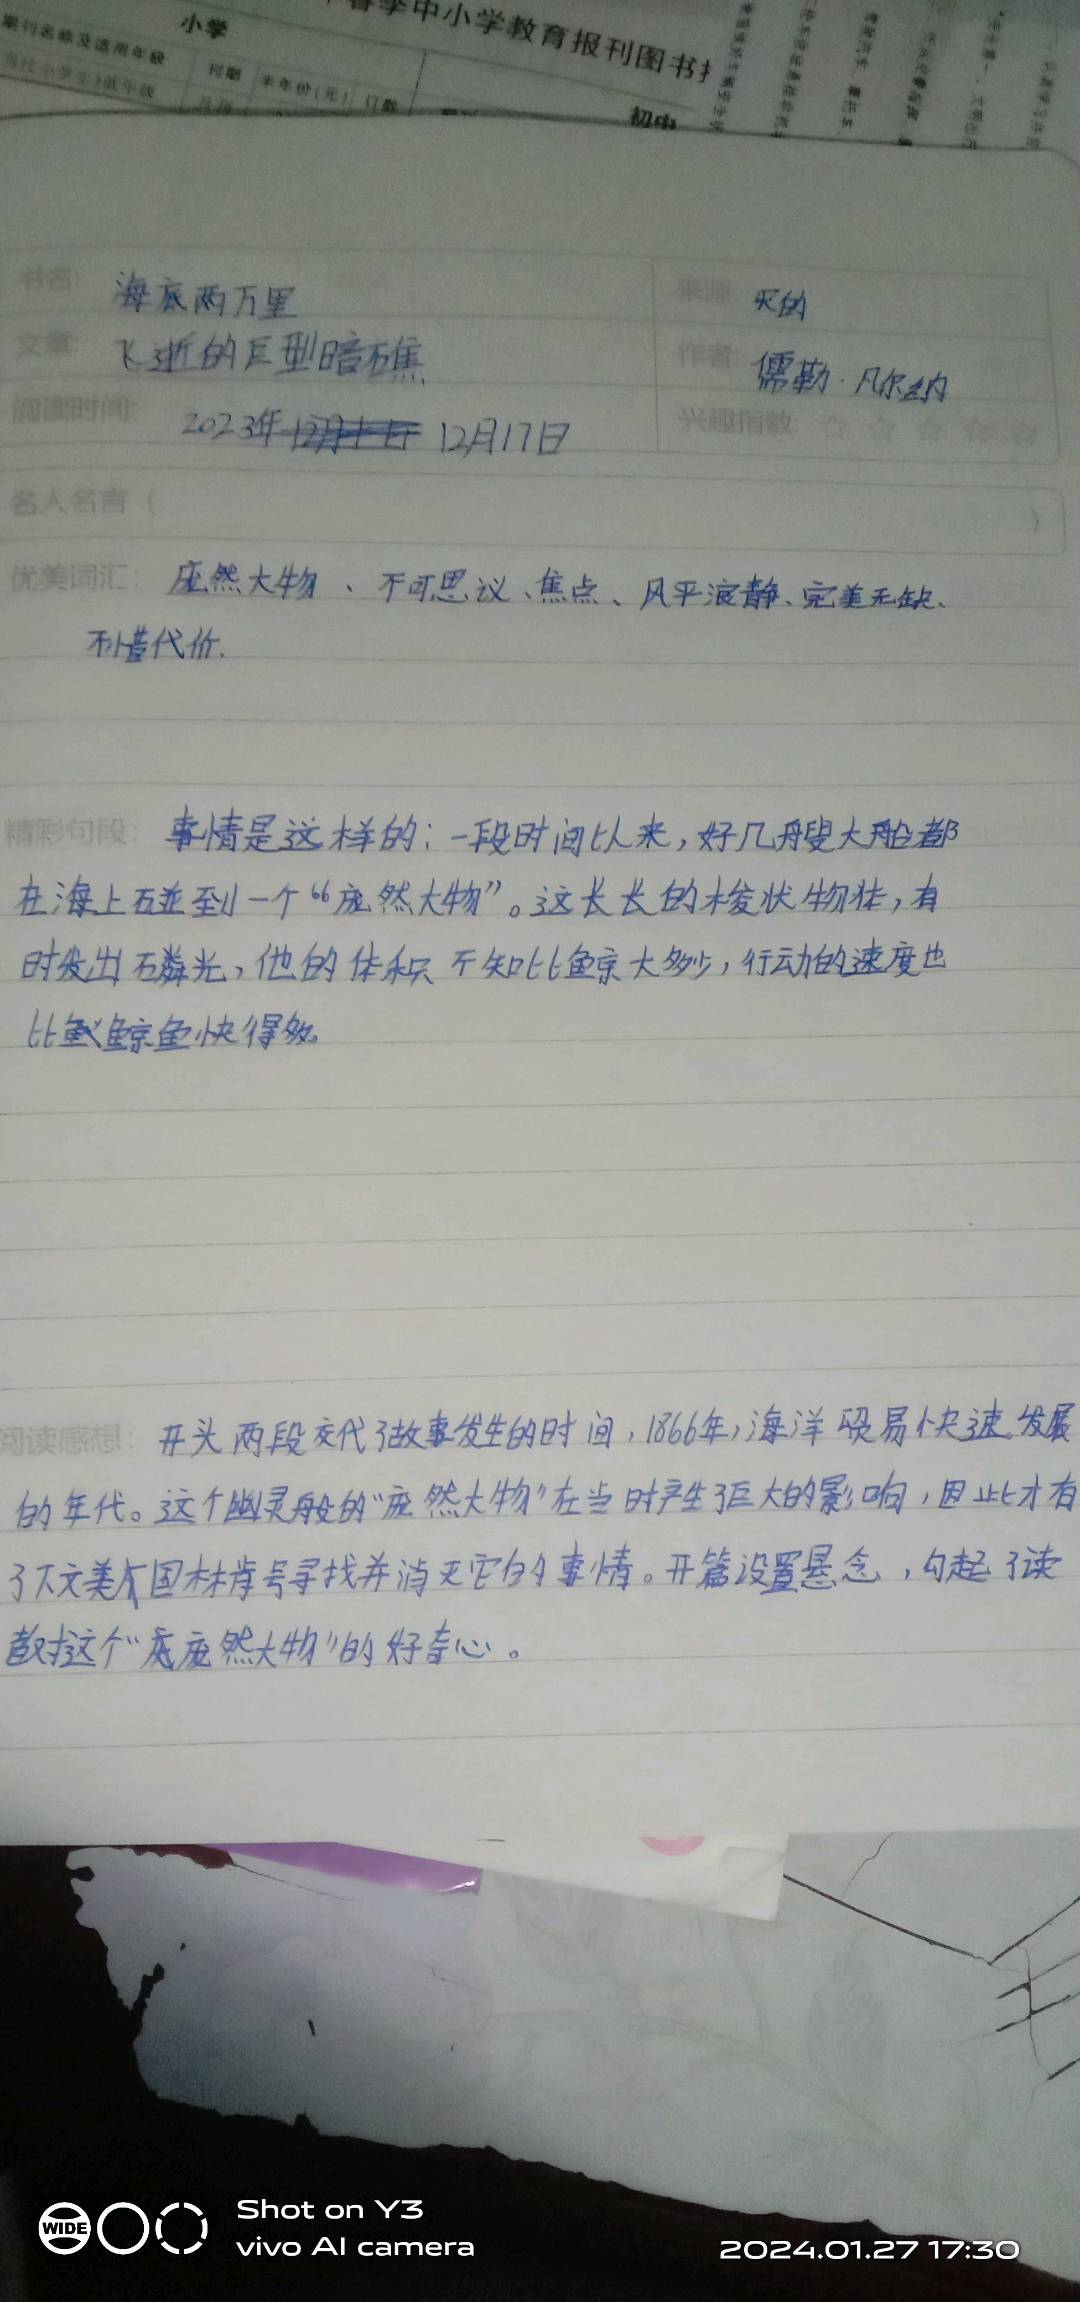 春季中小学教育报刊图书
小学
期刊名称及适用年级
刊期
半年价(元)
订数
当代小学生》低年级
初中
书名: 海底两万里
来源: 买的
文章: 飞逝的巨型暗礁
作者: 儒勒·凡尔纳
阅读时间: 2023年 12月17日
兴趣指数: ☆ ☆ ☆ ☆ ☆
名人名言 ( )
优美词汇: 庞然大物、不可思议、焦点、风平浪静、完美无缺、
不惜代价.
精彩句段: 事情是这样的:一段时间以来,好几艘大船都
在海上碰到一个“庞然大物”。这长长的梭状物体,有
时发出磷光,他的体积不知比鲸大多少,行动的速度也
比鲸鱼快得多。
阅读感想: 开头两段交代了故事发生的时间,1866年,海洋贸易快速发展
的年代。这个幽灵般的“庞然大物”在当时产生了巨大的影响,因此才有
了下文美国林肯号寻找并消灭它的事情。开篇设置悬念,勾起了读
者对这个“庞然大物”的好奇心。
WIDE
Shot on Y3
vivo AI camera
2024.01.27 17:30